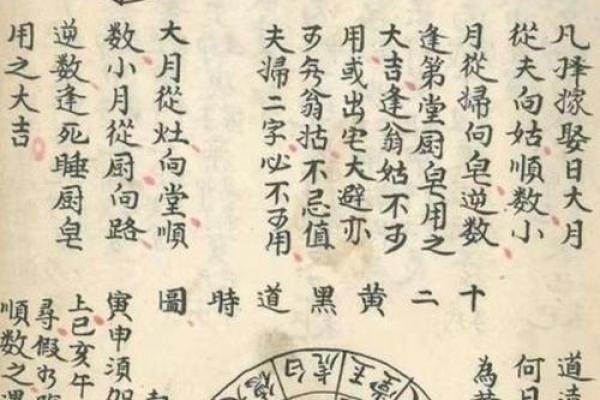 凡擇嫁娶日大月
從夫向姑順數小
月從婦向皂逆數
逢第堂厨皂用之
大吉逢翁姑不可
用或出宅大避亦
可無翁姑不忌值
夫婦二字必不可用
大月從灶向堂順
數小月從厨向路
逆数逢死睡厨皂
用之大吉
十二黄黑道時圖
道遠
何日
為黄
寅申須
上巳亥午
尋假
順數之遇
白虎
玉堂